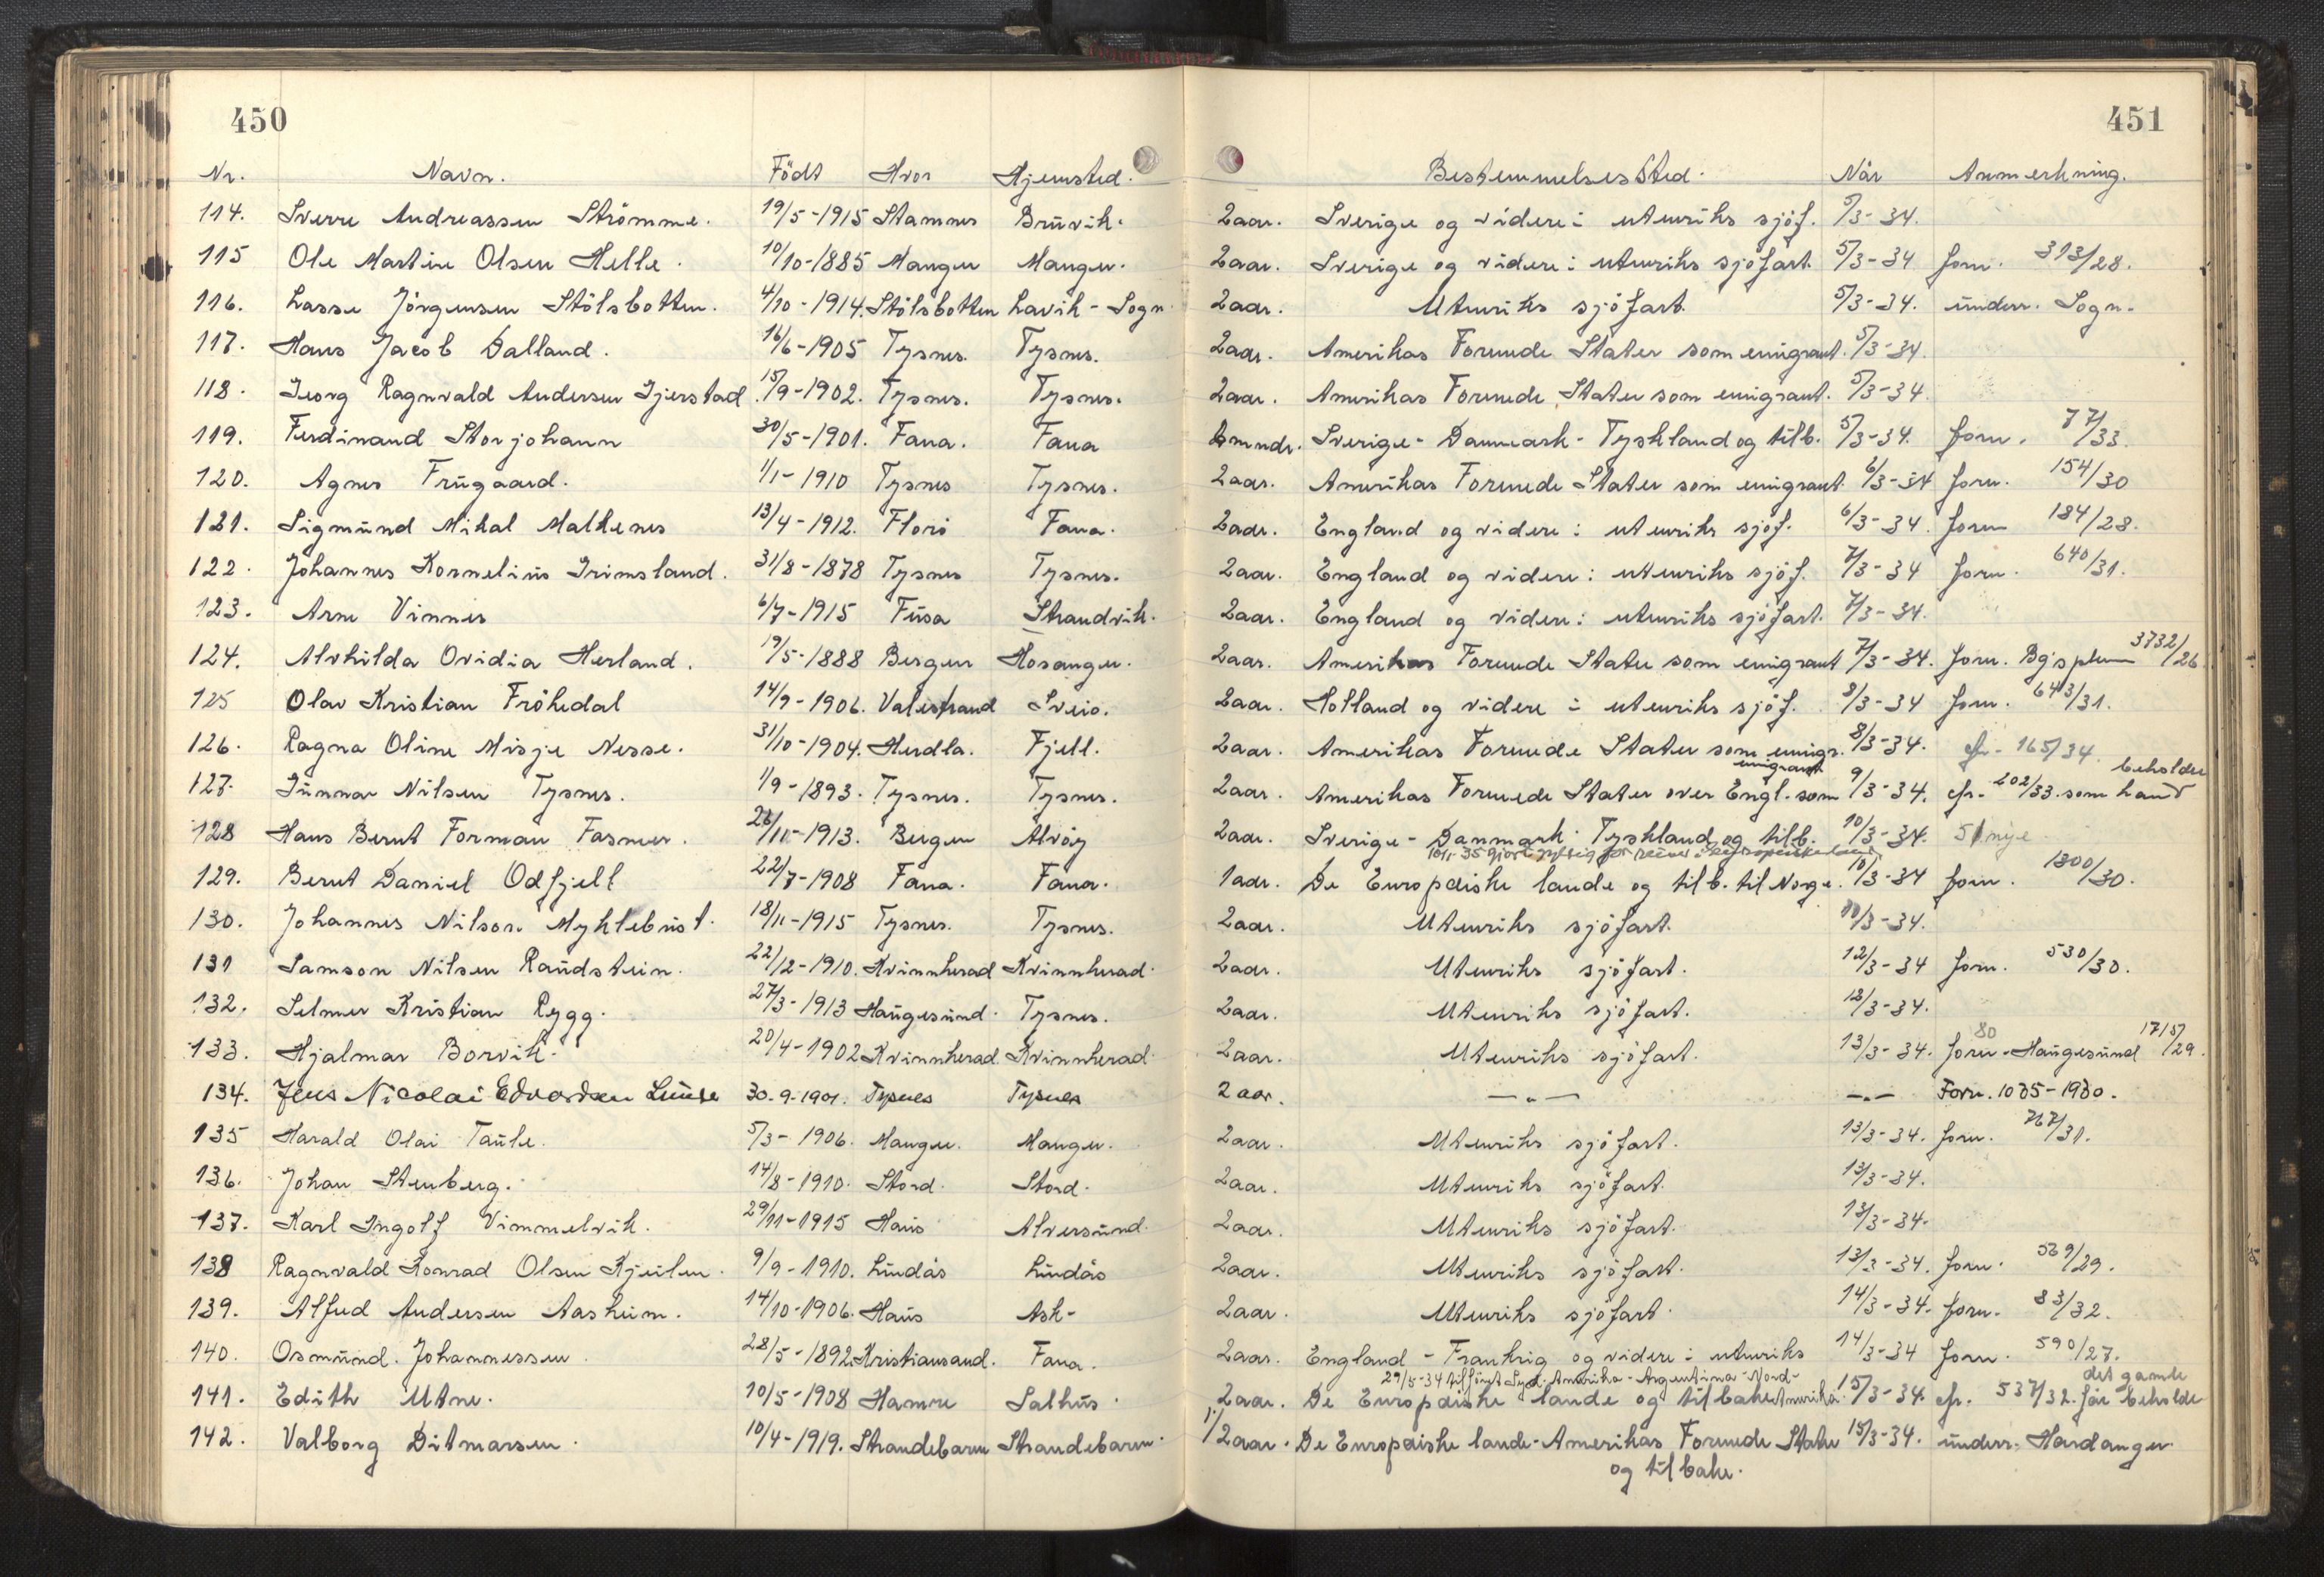 450
451
Nr. Navn. Födt Hvor Hjemsted. Bestemmelsessted. Når Anmerkning.
114. Sverre Andreassen Strömme. 19/5-1915 Stamnes Brüvik. 2aar. Sverige og videre i utenriks sjöf. 5/3-34.
115 Ole Martin Olsen Helle. 10/10-1885 Manger Manger. 2aar. Sverige og videre i utenriks sjöfart. 5/3-34 forn. 313/28.
116. Lasse Jörgensen Stölsbotten. 4/10-1914. Stölsbotten Lavik-Sogn. 2aar. Utenriks sjöfart. 5/3-34. underr. Sogn.
117. Hans Jacob Dalland. 16/6-1905 Tysnes. Tysnes. 2aar. Amerikas Forenede Stater som emigrant. 5/3-34.
118. Georg Ragnvald Andersen Gjerstad. 15/9-1902. Tysnes. Tysnes. 2aar. Amerikas Forenede Stater som emigrant. 5/3-34.
119. Ferdinand Storjohann 30/5-1901. Fana. Fana 6mndr. Sverige-Danmark-Tyskland og tilb. 5/3-34. forn. 77/33.
120. Agnes Frügaard. 1/1-1910 Tysnes Tysnes. 2aar. Amerikas Forenede Stater som emigrant 6/3-34 forn. 154/30
121. Sigmünd Mikal Malkenes 13/4-1912. Florö Fana. 2aar. England og videre i utenriks sjöf. 6/3-34. forn 184/28.
122. Johannes Kornelius Grimsland. 31/8-1878 Tysnes Tysnes. 2aar. England og videre i utenriks sjöf. 7/3-34 forn. 640/31.
123. Arne Vinnes 6/7-1915 Füsa Strandvik. 2aar. England og videre i utenriks sjöfart. 7/3-34.
124. Alvhilda Ovidia Herland. 19/5-1888 Bergen Hosanger. 2aar. Amerikas Forenede Stater som emigrant 7/3-34. forn. Bg's 3732/26
125 Olav Kristian Frökedal 14/9-1906. Valestrand Sveio. 2aar. Holland og videre i utenriks sjöf. 8/3-34 forn. 643/31.
126. Ragna Oline Misje Nesse. 31/10-1904. Herdla. Fjell. 2aar. Amerikas Forenede Stater som emigr. 8/3-34. cfr. 165/34.
127. Günnar Nilsen Tysnes. 1/9-1893. Tysnes. Tysnes. 2aar. Amerikas Forenede Stater over Engl. som emigrant 9/3-34. cfr. 202/33. som han beholder
128 Hans Bernt Forman Fasmer. 26/11-1913. Bergen Alvöy 2aar. Sverige-Danmark-Tyskland og tilb. 10/3-34. 51 nye
gjort gyldig for reiser i europeiske land
129. Bernt Daniel Odfjell 22/7-1908 Fana. Fana. 1aar. De Europæiske lande og tilb. til Norge. 10/3-34 forn. 1300/30.
130. Johannes Nilsen Myklebüst. 18/11-1915 Tysnes. Tysnes. 2aar. Utenriks sjöfart. 10/3-34.
131 Samson Nilsen Raüdstein. 22/12-1910. Kvinnherad Kvinnherad. 2aar. Utenriks sjöfart. 12/3-34 forn. 530/30.
132. Selmer Kristian Rygg. 27/3-1913 Haügesünd. Tysnes. 2aar. Utenriks sjöfart. 12/3-34.
133. Hjalmar Borvik. 20/4-1902 Kvinnherad. Kvinnherad. 2aar. Utenriks sjöfart. 13/3-34. forn-Haügesünd 1715/29. 80
134. Jens Nicolai Edvardsen Lünde 30.9.1901. Tysnes Tysnes 2 aar. —"— —"— Forn. 1035-1930.
135 Harald Olai Taüle. 5/3-1906. Manger. Manger. 2aar. Utenriks sjöfart. 13/3-34. forn. 767/31.
136. Johan Stenberg. 14/8-1910. Stord. Stord. 2aar. Utenriks sjöfart. 13/3-34.
137. Karl Ingolf Vimmelvik. 29/11-1915 Haüs Alversünd. 2aar. Utenriks sjöfart. 13/3-34.
138 Ragnvald Konrad Olsen Kjeilen. 9/9-1910. Lindås Lindås 2aar. Utenriks sjöfart. 13/3-34. forn. 569/29.
139. Alfred Andersen Aasheim. 14/10-1906. Haüs Ask- 2aar. Utenriks sjöfart. 14/3-34. forn. 83/32.
140. Osmünd Johannessen. 28/5-1892. Kristiansand. Fana. 2aar. England-Frankrig og videre i utenriks 14/3-34 forn. 590/27.
29/5-34 tilföiet Syd-Amerika-Argentina-Nord-Amerika.
141. Edith Utne. 10/5-1908 Hamre Salhüs. 2aar. De Europæiske lande og tilbake. 15/3-34. cfr. 537/32. får beholde det gamle
142. Valborg Ditmarsen. 10/4-1919. Strandebarm Strandebarm. 1/2aar. De Europæiske lande-Amerikas Forenede Stater 15/3-34. underr. Hardanger.
og tilbake.